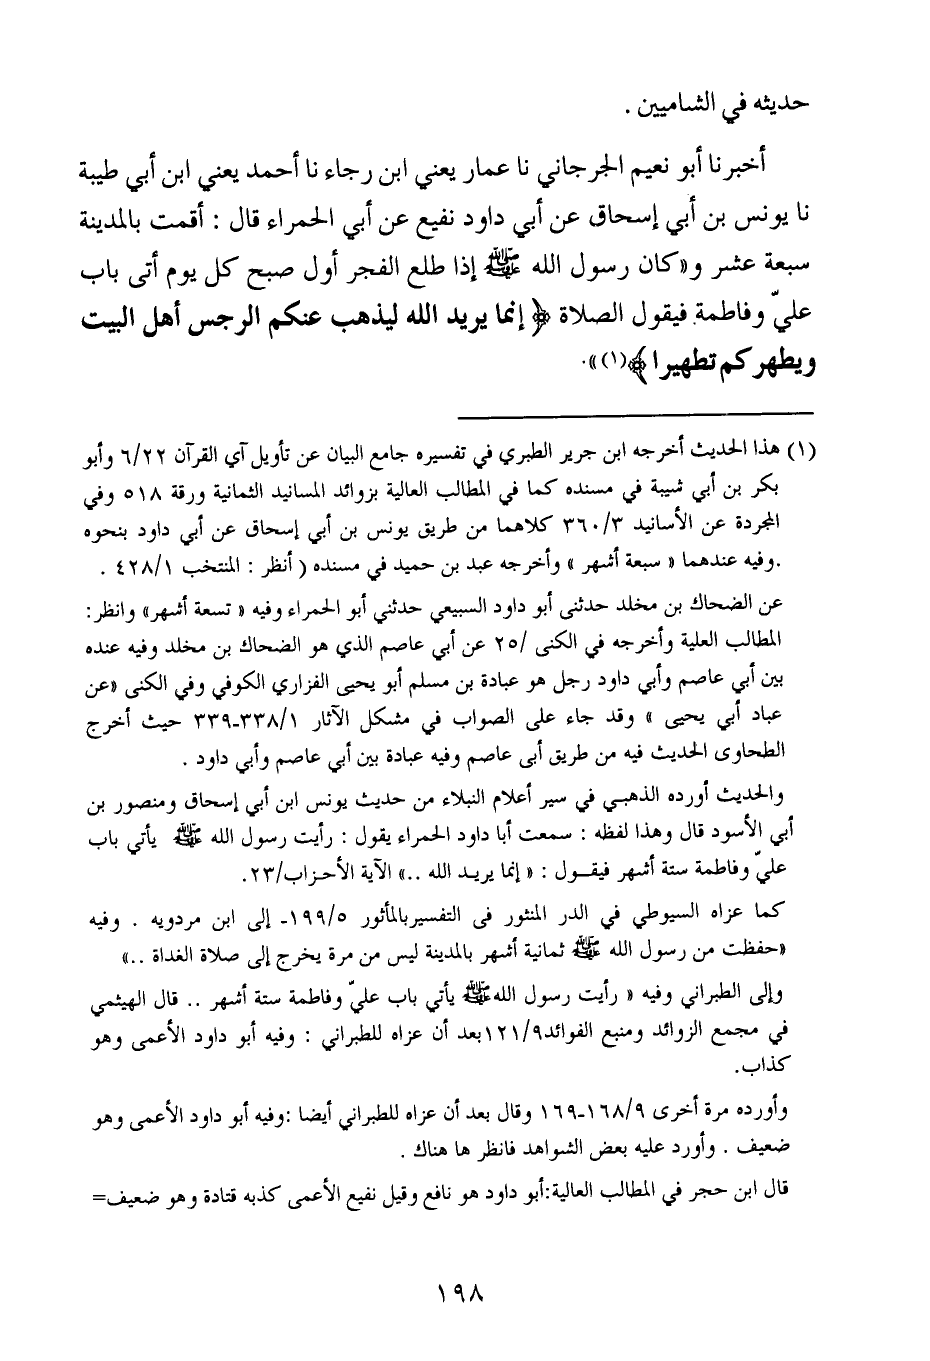 حديثه في الشاميين .
أخبرنا أبو نعيم الجرجاني نا عمار يعني ابن رجاء نا أحمد يعني ابن أبي طيبة
نا يونس بن أبي إسحاق عن أبي داود نفيع عن أبي الحمراء قال : أقمت بالمدينة
سبعة عشر و«كان رسول الله ﷺ إذا طلع الفجر أول صبح كل يوم أتى باب
عليّ وفاطمة فيقول الصلاة ﴿ إنما يريد الله ليذهب عنكم الرجس أهل البيت
ويطهركم تطهيرا ﴾(١)».
(١) هذا الحديث أخرجه ابن جرير الطبري في تفسيره جامع البيان عن تأويل آي القرآن ٦/٢٢ وأبو
بكر بن أبي شيبة في مسنده كما في المطالب العالية بزوائد المسانيد الثمانية ورقة ٥١٨ وفي
المجردة عن الأسانيد ٣٦٠/٣ كلاهما من طريق يونس بن أبي إسحاق عن أبي داود بنحوه
.وفيه عندهما « سبعة أشهر » وأخرجه عبد بن حميد في مسنده ( أنظر : المنتخب ٤٢٨/١ .
عن الضحاك بن مخلد حدثنى أبو داود السبيعي حدثني أبو الحمراء وفيه « تسعة أشهر» وانظر:
المطالب العلية وأخرجه في الكنى /٢٥ عن أبي عاصم الذي هو الضحاك بن مخلد وفيه عنده
بين أبي عاصم وأبي داود رجل هو عبادة بن مسلم أبو يحيى الفزاري الكوفي وفي الكنى «عن
عباد أبي يحيى » وقد جاء على الصواب في مشكل الآثار ٣٣٨/١-٣٣٩ حيث أخرج
الطحاوى الحديث فيه من طريق أبى عاصم وفيه عبادة بين أبي عاصم وأبي داود .
والحديث أورده الذهبي في سير أعلام النبلاء من حديث يونس ابن أبي إسحاق ومنصور بن
أبي الأسود قال وهذا لفظه : سمعت أبا داود الحمراء يقول : رأيت رسول الله ﷺ يأتي باب
عليّ وفاطمة ستة أشهر فيقول : « إنما يريد الله ..» الآية الأحزاب/٢٣.
كما عزاه السيوطي في الدر المنثور فى التفسيربالمأثور ١٩٩/٥- إلى ابن مردويه . وفيه
«حفظت من رسول الله ﷺ ثمانية أشهر بالمدينة ليس من مرة يخرج إلى صلاة الغداة ..»
وإلى الطبراني وفيه « رأيت رسول اللهﷺ يأتي باب عليّ وفاطمة ستة أشهر .. قال الهيثمي
في مجمع الزوائد ومنبع الفوائد١٢١/٩بعد أن عزاه للطبراني : وفيه أبو داود الأعمى وهو
كذاب.
وأورده مرة أخرى ١٦٨/٩-١٦٩ وقال بعد أن عزاه للطبراني أيضا :وفيه أبو داود الأعمى وهو
ضعيف . وأورد عليه بعض الشواهد فانظر ها هناك .
قال ابن حجر في المطالب العالية:أبو داود هو نافع وقيل نفيع الأعمى كذبه قتادة وهو ضعيف=
١٩٨